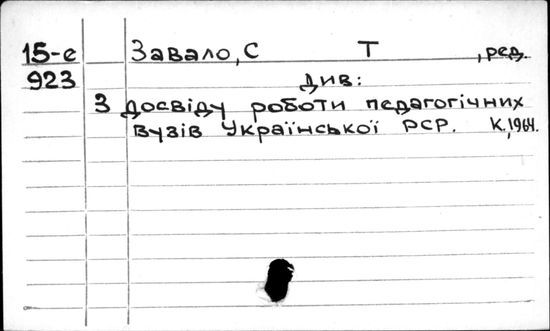 15-е Завало, С Т , ред.
923 див:
З досвіду роботи педагогічних
вузів Української РСР. К., 1964.